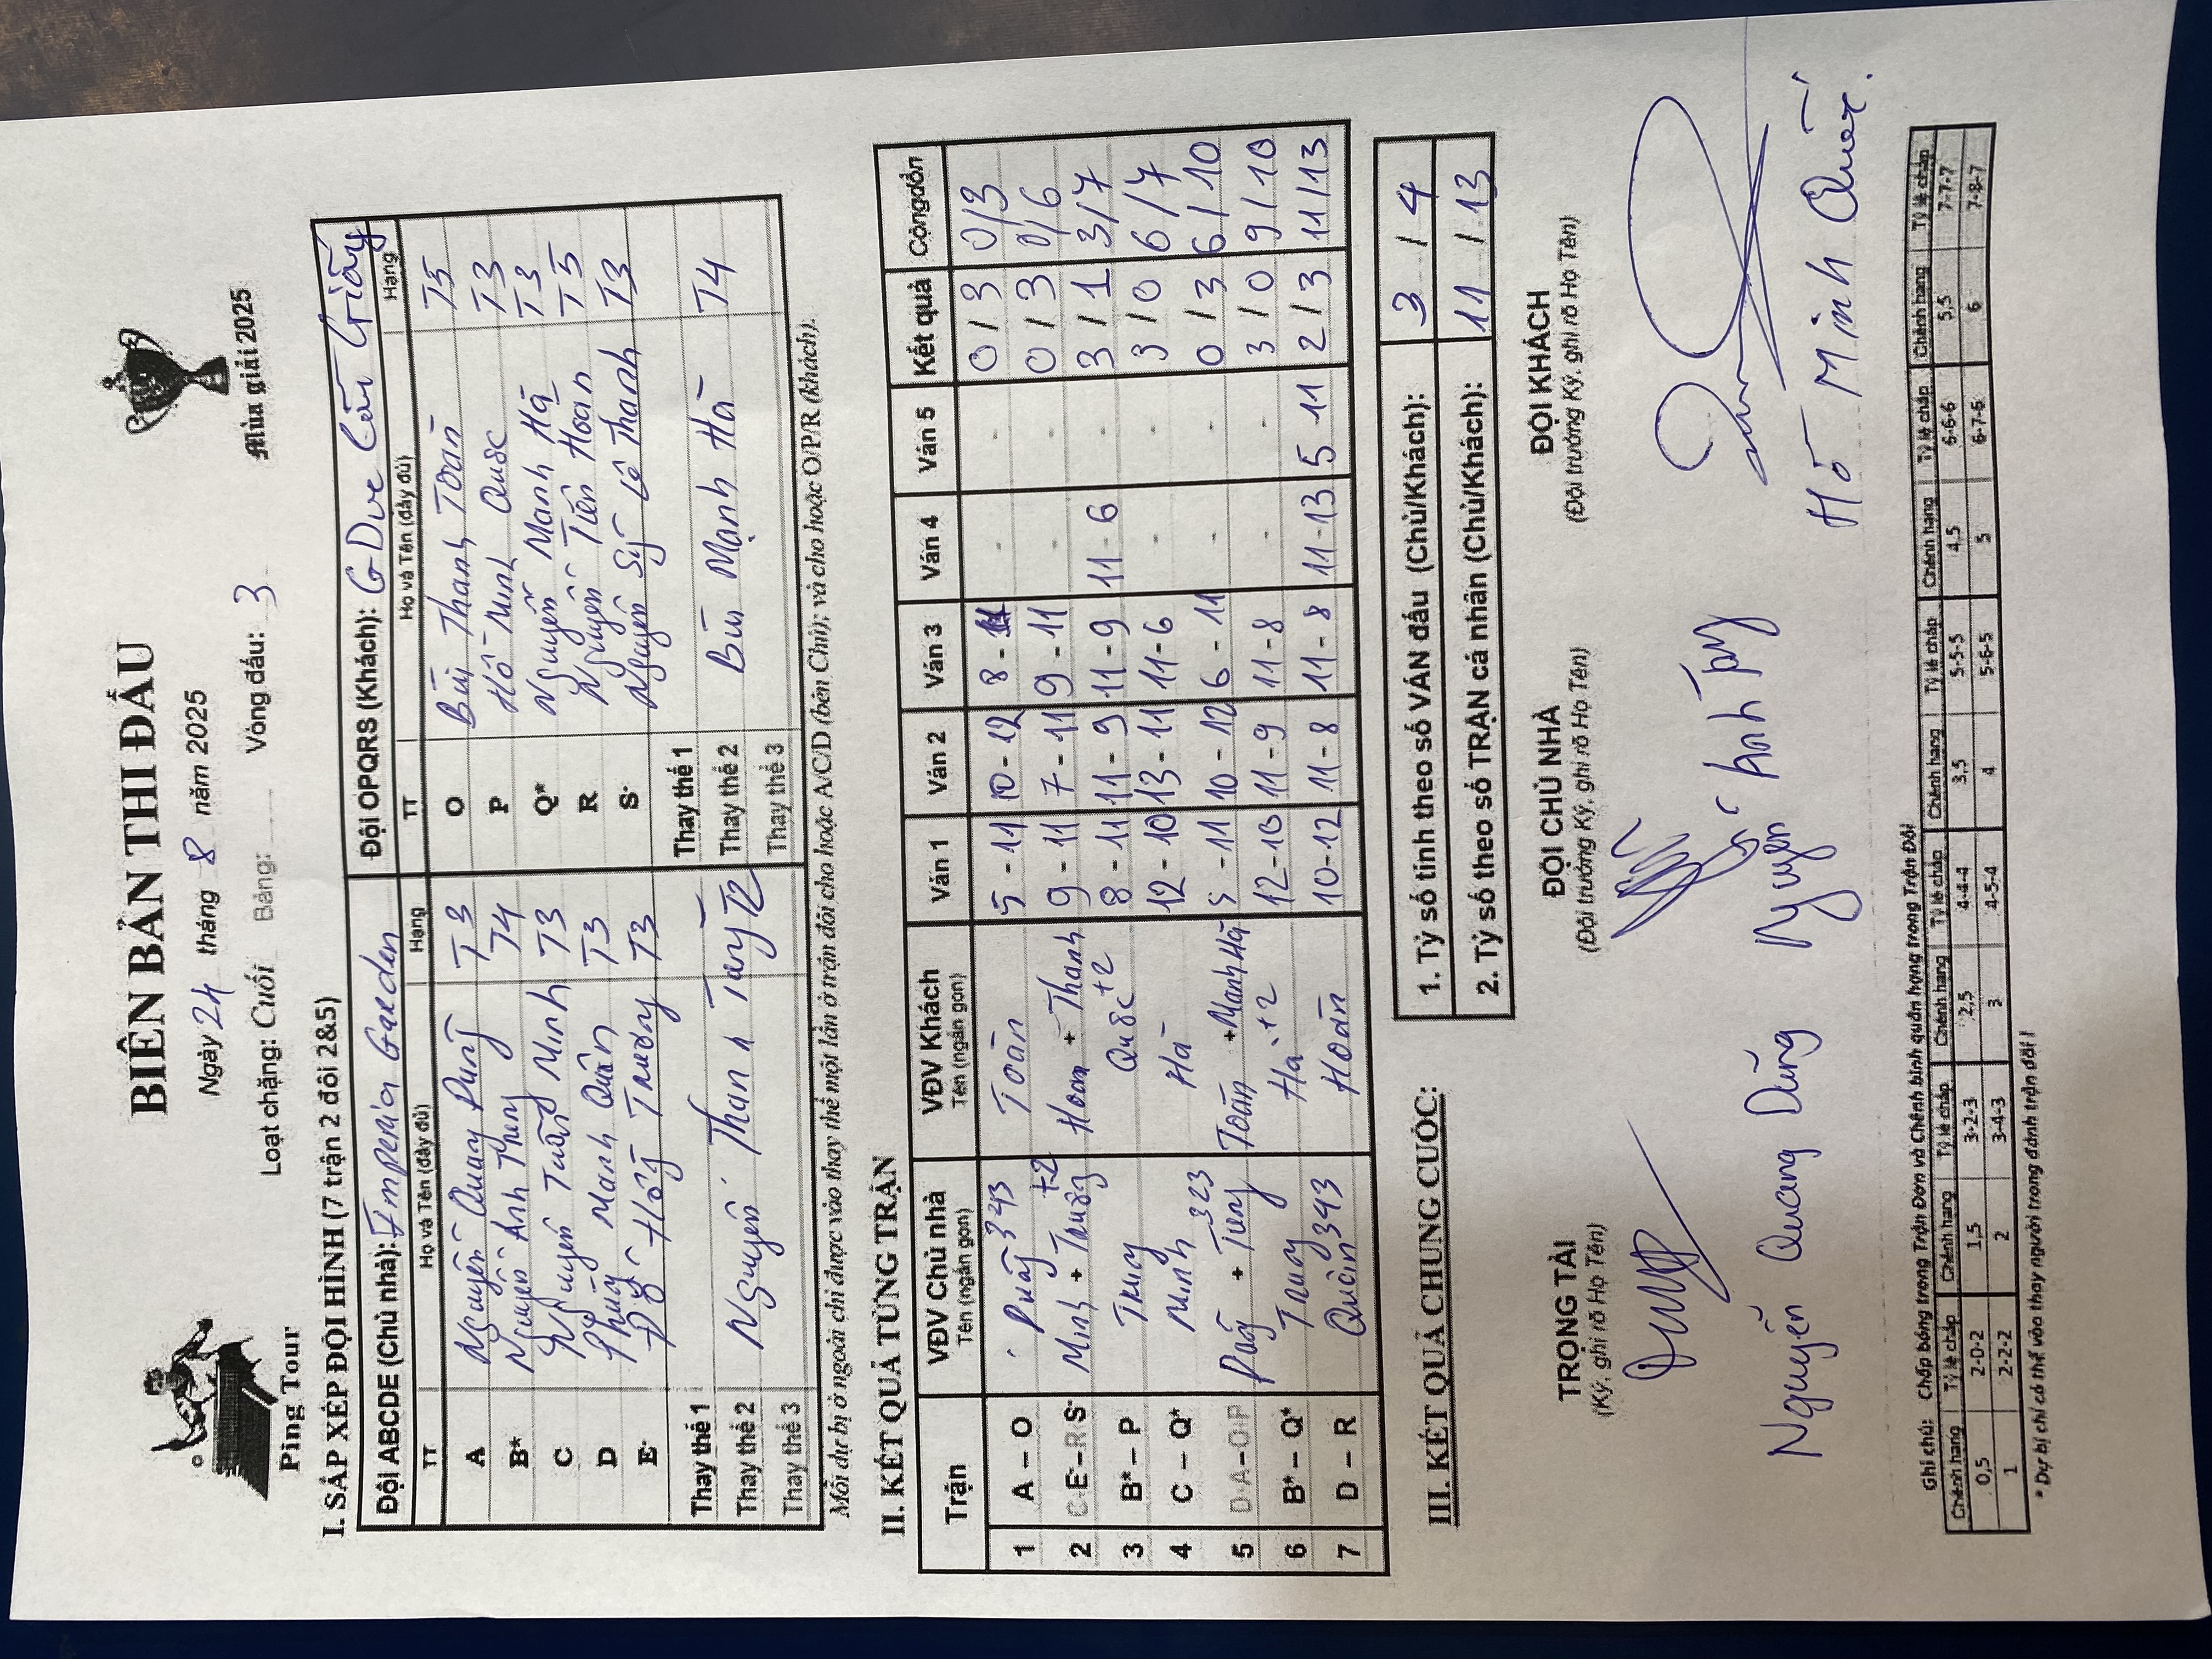 BIÊN BẢN THI ĐẤU
Ngày 24 tháng 8 năm 2025
Ping Tour
Loạt chặng: Cuối Bảng: Vòng đấu: 3
Mùa giải 2025
I. SẮP XẾP ĐỘI HÌNH (7 trận 2 đôi 2&5)
Đội ABCDE (Chủ nhà): Imperia Garden Đội OPQRS (Khách): GDVC Cầu Giấy
TT Họ và Tên (đầy đủ) Hạng TT Họ và Tên (đầy đủ) Hạng
A Nguyễn Quang Dũng T3 O Bùi Thanh Toàn T5
B* Nguyễn Anh T4 P Hồ Minh Quốc T3
C Nguyễn Tuấn Minh T3 Q* Nguyễn Mạnh Hà T3
D Mạnh Quân T3 R Nguyễn Tiến Hoàn T5
E T3 S Nguyễn Sỹ Lê Thanh T3
Thay thế 1 Thay thế 1
Thay thế 2 Nguyễn Thanh Tùng T2 Thay thế 2 Bùi Mạnh Hà T4
Thay thế 3 Thay thế 3
Mỗi dự bị ở ngoài chỉ được vào thay thế một lần ở trận đôi cho hoặc A/C/D (bên Chủ); và cho hoặc O/P/R (khách).
II. KẾT QUẢ TỪNG TRẬN
Trận VĐV Chủ nhà Tên (ngắn gọn) VĐV Khách Tên (ngắn gọn) Ván 1 Ván 2 Ván 3 Ván 4 Ván 5 Kết quả Cộng dồn
1 A – O Dũng 343 Toàn 5 - 11 10 - 12 8 - 11 - - 0 / 3 0/3
2 C E – R S Minh + +2 Hoàn + Thanh 9 - 11 7 - 11 9 - 11 - - 0 / 3 0/6
3 B* – P Quốc +2 8 - 11 11 - 9 11 - 9 11 - 6 - 3 / 1 3/7
4 C – Q* Minh 323 Hà 12 - 10 13 - 11 11 - 6 - - 3 / 0 6/7
5 D A – O P Dũng + Tùng Toàn + Mạnh Hà 5 - 11 10 - 12 6 - 11 - - 0 / 3 6/10
6 B* – Q* Hà +2 12 - 10 11 - 9 11 - 8 - - 3 / 0 9/10
7 D – R Quân 343 Hoàn 10 - 12 11 - 8 11 - 8 11 - 13 5 - 11 2 / 3 11/13
III. KẾT QUẢ CHUNG CUỘC:
1. Tỷ số tính theo số VÁN đấu (Chủ/Khách): 3 / 4
2. Tỷ số theo số TRẬN cá nhân (Chủ/Khách): 11 / 13
TRỌNG TÀI ĐỘI CHỦ NHÀ ĐỘI KHÁCH
(Ký, ghi rõ Họ Tên) (Đội trưởng Ký, ghi rõ Họ Tên) (Đội trưởng Ký, ghi rõ Họ Tên)
Nguyễn Quang Dũng Nguyễn Anh Hồ Minh Quốc.
Ghi chú: Chấp bóng trong Trận Đơn và Chênh bình quân hạng trong Trận Đôi
Chênh hạng Tỷ lệ chấp Chênh hạng Tỷ lệ chấp Chênh hạng Tỷ lệ chấp Chênh hạng Tỷ lệ chấp Chênh hạng Tỷ lệ chấp Chênh hạng Tỷ lệ chấp
0,5 2-0-2 1,5 3-2-3 2,5 4-4-4 3,5 5-5-5 4,5 6-6-6 5,5 7-7-7
1 2-2-2 2 3-4-3 3 4-5-4 4 5-6-5 5 6-7-6 6 7-8-7
* Dự bị chỉ có thể vào thay người trong đánh trận đôi !